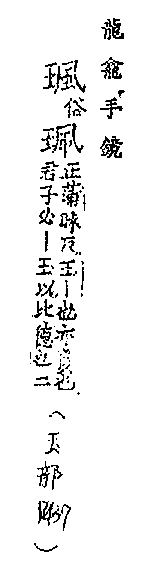 龍龕手鏡
俗珮正蒲昧反玉丨也亦也君子必丨玉以比德也二（玉部）